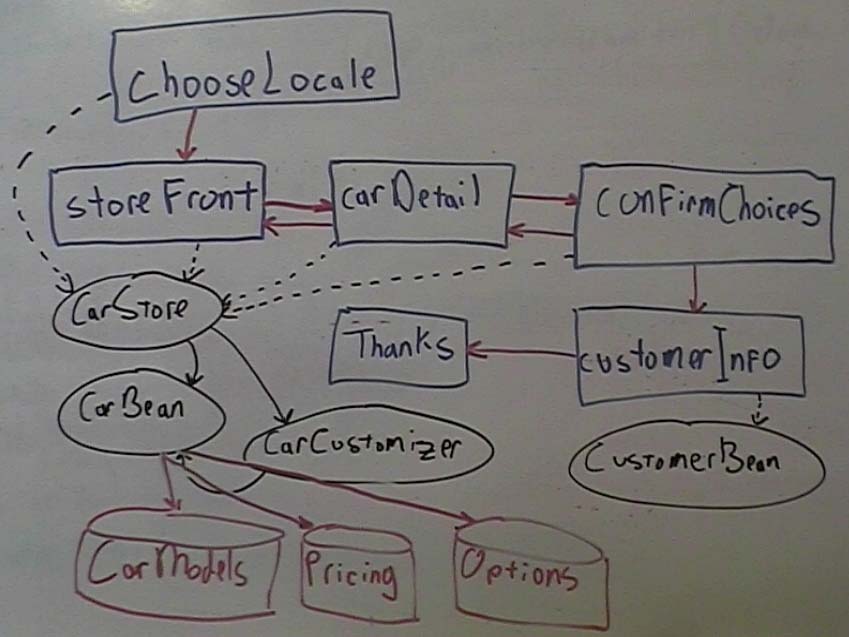 ChooseLocale
storeFront
carDetail
confirmChoices
CarStore
Thanks
customerInfo
CarBean
CarCustomizer
CustomerBean
CarModels
Pricing
Options